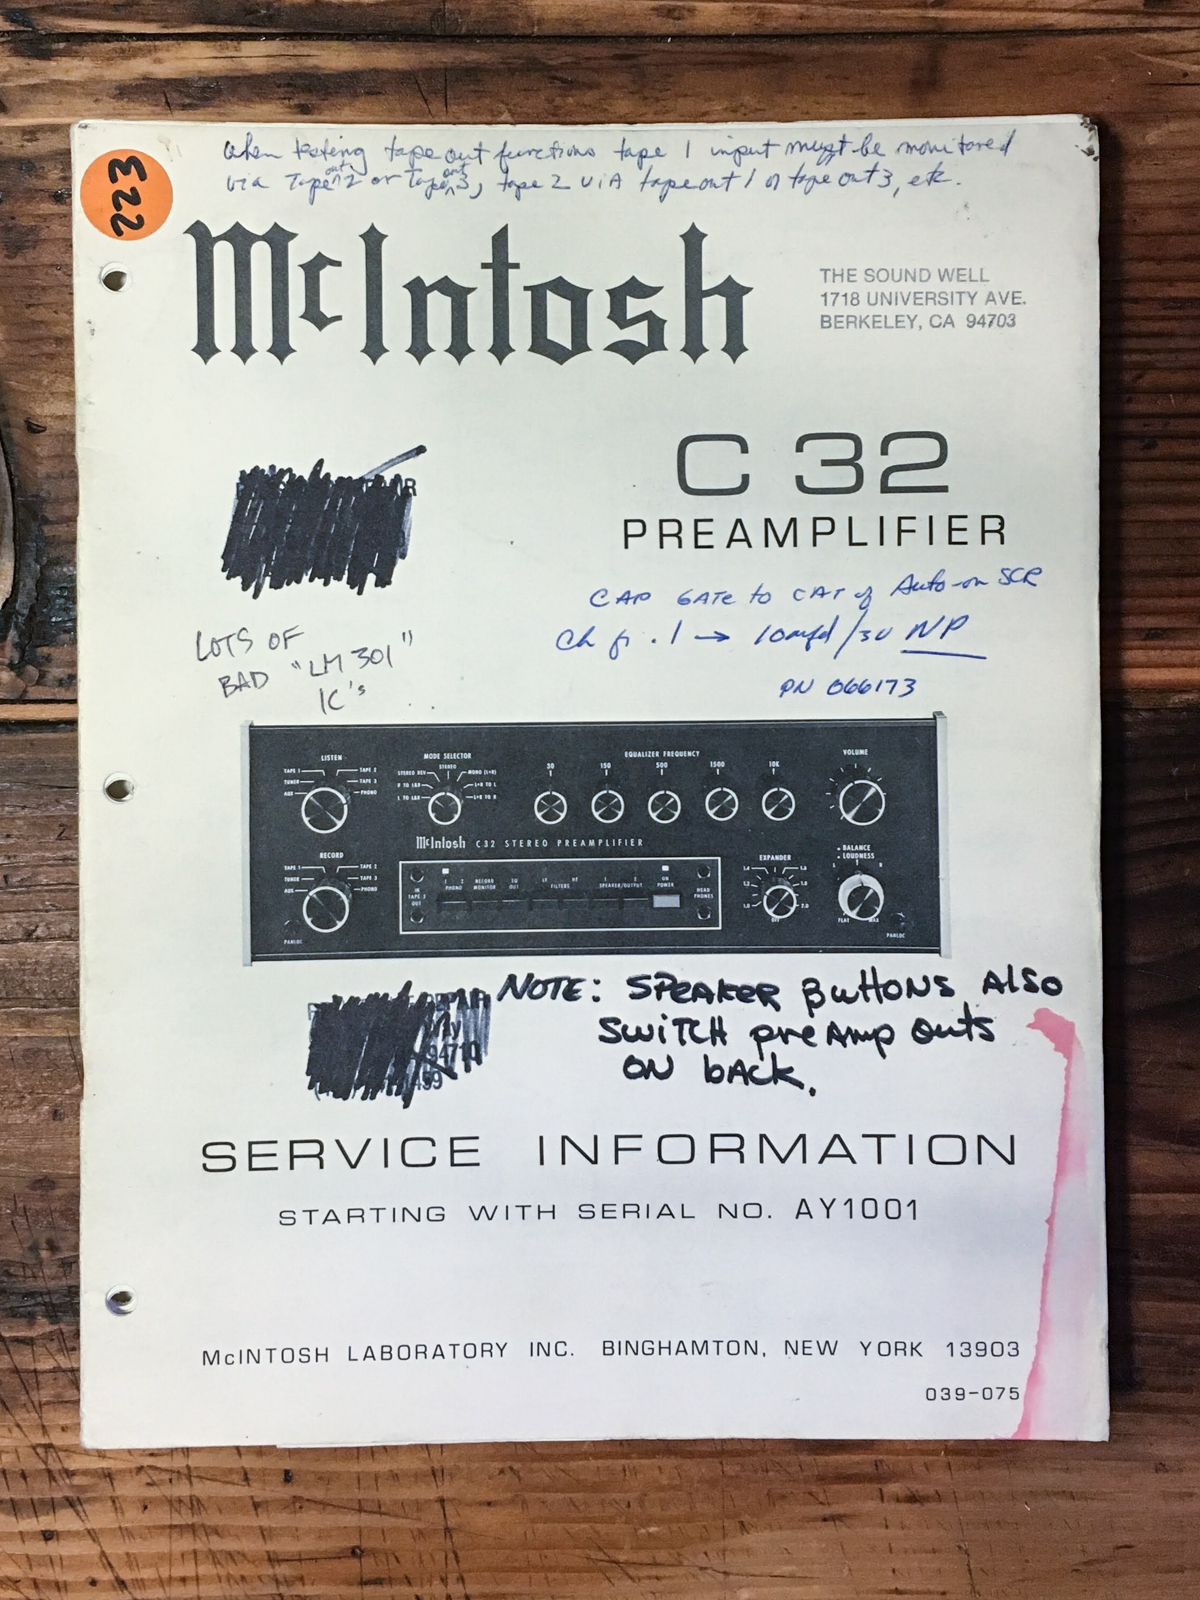 when testing tape out functions tape 1 input must be monitored
via Tape out 2 or Tape out 3, tape 2 ViA tape out 1 or tape out 3, etc.
E22
McIntosh
THE SOUND WELL
1718 UNIVERSITY AVE.
BERKELEY, CA 94703
C 32
PREAMPLIFIER
CAP GATE to CAT of Auto-on SCR
Ch fr .1 → 10mfd/3V NP
PN 066173
LOTS OF
BAD "LM 301"
IC's
LISTEN
TAPE 1 TAPE 2
TUNER TAPE 3
AUX PHONO
MODE SELECTOR
STEREO
STEREO REV MONO (L+R)
R TO L&R L+R TO L
L TO L&R L+R TO R
EQUALIZER FREQUENCY
30 150 500 1500 10K
VOLUME
McIntosh C32 STEREO PREAMPLIFIER
RECORD
TAPE 1 TAPE 2
TUNER TAPE 3
AUX PHONO
PANLOC
IN
TAPE 3
OUT
1 2
PHONO
RECORD
MONITOR
EQ
OUT
LF HF
FILTERS
1 2
SPEAKER/OUTPUT
ON
POWER
HEAD
PHONES
EXPANDER
1.4 1.6
1.2 1.8
1.0 2.0
OFF
BALANCE
LOUDNESS
L R
FLAT MAX
PANLOC
NOTE: SPEAKER BUTTONS ALSO
SWITCH preAmp outs
ON bACK.
94710
SERVICE INFORMATION
STARTING WITH SERIAL NO. AY1001
McINTOSH LABORATORY INC. BINGHAMTON, NEW YORK 13903
039-075